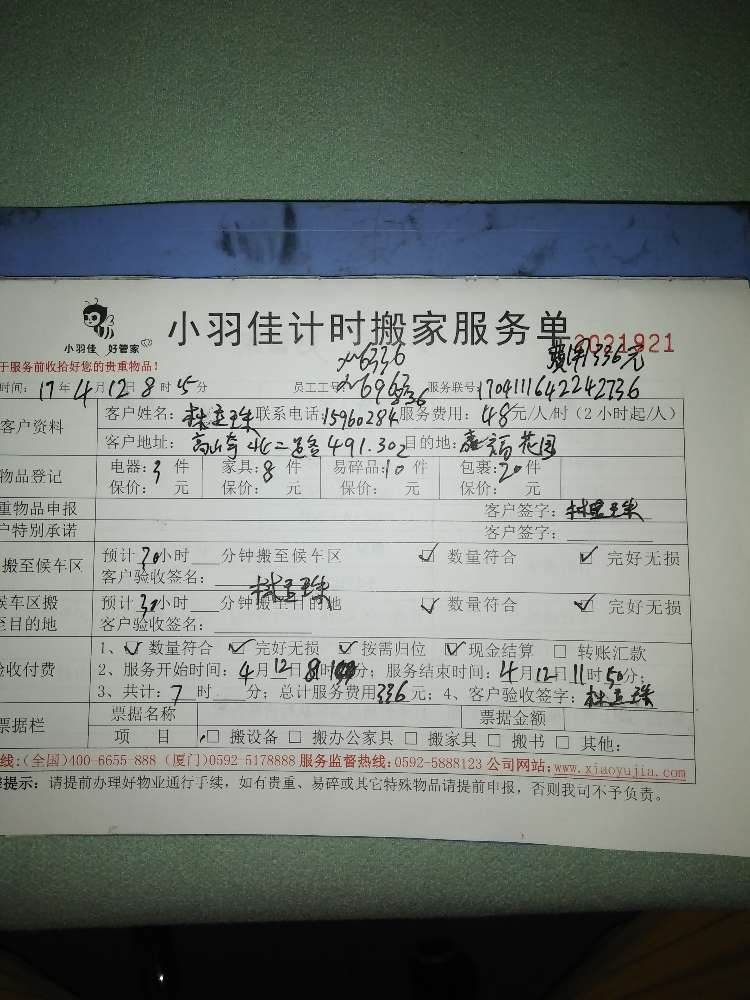 小羽佳计时搬家服务单
小羽佳 好管家
2021921
于服务前收拾好您的贵重物品!
6336
336元
时间: 17年4月12日8时45分 员工工号: 6963 服务联号: 1704111642242736
客户资料
客户姓名: 林玉珠 联系电话: 15960284 服务费用: 48元/人/时(2小时起/人)
客户地址: 491.302 目的地: 花园
物品登记
电器: 3件 家具: 8件 易碎品: 10件 包裹: 20件
保价: 元 保价: 元 保价: 元 保价: 元
重物品申报 客户签字: 林玉珠
户特别承诺 客户签字:
搬至候车区
预计 小时 分钟搬至候车区 ☑ 数量符合 ☑ 完好无损
客户验收签名: 林玉珠
候车区搬
至目的地
预计 小时 分钟搬至目的地 ☑ 数量符合 ☑ 完好无损
客户验收签名:
验收付费
1、☑ 数量符合 ☑ 完好无损 ☑ 按需归位 ☑ 现金结算 □ 转账汇款
2、服务开始时间: 4月12日8时 分; 服务结束时间: 4月12日11时50分;
3、共计: 7时 分; 总计服务费用336元; 4、客户验收签字: 林玉珠
票据栏
票据名称 票据金额
项 目 □ 搬设备 □ 搬办公家具 □ 搬家具 □ 搬书 □ 其他:
线:(全国)400-6655-888 (厦门)0592-5178888 服务监督热线:0592-5888123 公司网站:www.xiaoyujia.com
提示: 请提前办理好物业通行手续, 如有贵重、易碎或其它特殊物品请提前申报, 否则我司不予负责。